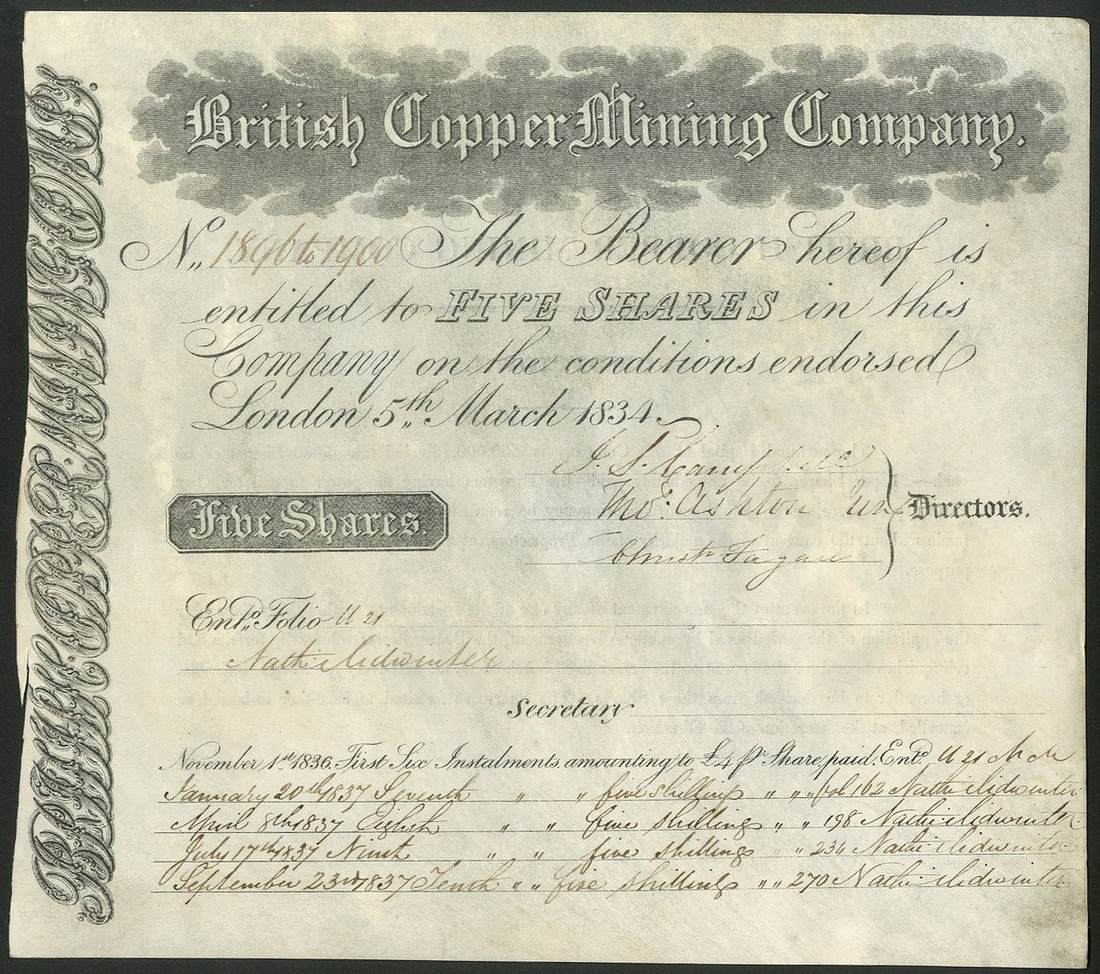 British Copper Mining Company.
No. 1896 to 1900 The Bearer hereof is
entitled to FIVE SHARES in this
Company on the conditions endorsed
London 5th March 1834.
Thos. Ashton
Five Shares.
Directors.
Christr Fagan
Entd. Folio U 21
Nath Midwinter
Secretary
November 1st 1836. First Six Instalments amounting to £4 pr Share, paid, Entd. U 21 N M
January 20th 1837 Seventh " " five shillings " " fol 162 Nath Midwinter
April 8th 1837 Eighth " " five shillings " " 198 Nath Midwinter
July 17th 1837 Ninth " " five shillings " " 234 Nath Midwinter
September 23rd 1837 Tenth " " five shillings " " 270 Nath Midwinter
BRITISH. COPPER. MINING. COMPY.